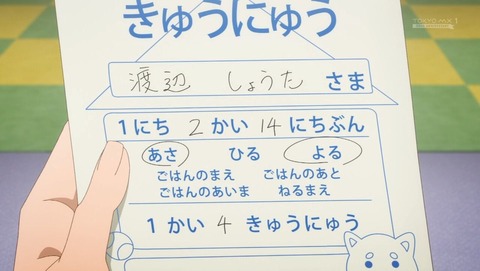 TOKYO MX 1
きゅうにゅう
渡辺 しょうた さま
1にち 2 かい 14 にちぶん
あさ ひる よる
ごはんのまえ ごはんのあと
ごはんのあいま ねるまえ
1 かい 4 きゅうにゅう